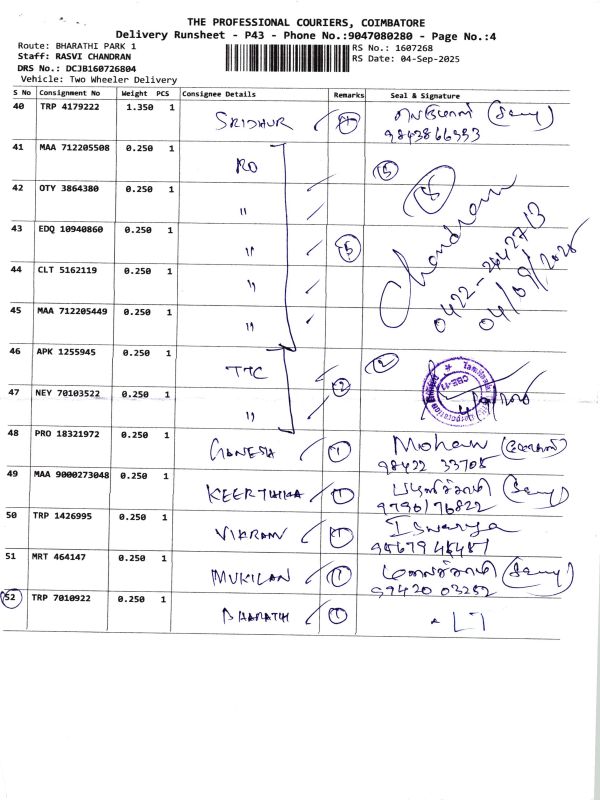 THE PROFESSIONAL COURIERS, COIMBATORE
Delivery Runsheet - P43 - Phone No.:9047080280 - Page No.:4
Route: BHARATHI PARK 1
Staff: RASVI CHANDRAN
DRS No.: DCJB160726804
Vehicle: Two Wheeler Delivery
RS No.: 1607268
RS Date: 04-Sep-2025
S No Consignment No Weight PCS Consignee Details Remarks Seal & Signature
40 TRP 4179222 1.350 1 SRIDHUR 1
9843866993
41 MAA 712205508 0.250 1 RO 5 5
42 OTY 3864380 0.250 1 "
43 EDQ 10940860 0.250 1 " 5
44 CLT 5162119 0.250 1 "
45 MAA 712205449 0.250 1 "
Chandram
0422-2442713
04/09/2025
46 APK 1255945 0.250 1 TTC 2 2
47 NEY 70103522 0.250 1 "
48 PRO 18321972 0.250 1 GANESH 1 Mohan
98422 33708
49 MAA 9000273048 0.250 1 KEERTHIKA 1
9790176822
50 TRP 1426995 0.250 1 VIKRAM 1 Iswarya
51 MRT 464147 0.250 1 MUKILAN 1
97420 03252
52 TRP 7010922 0.250 1 BHARATH 1